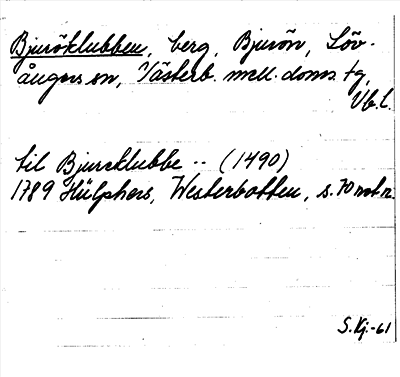 Bjuröklubben, berg, Bjurön, Löv-
ångers sn, Västerb. mell. doms. tg,
Vb. l.
til Bjurcklubbe -- (1490)
1789 Hülphers, Westerbotten, s. 70 mt. n.
S. Kj. -61